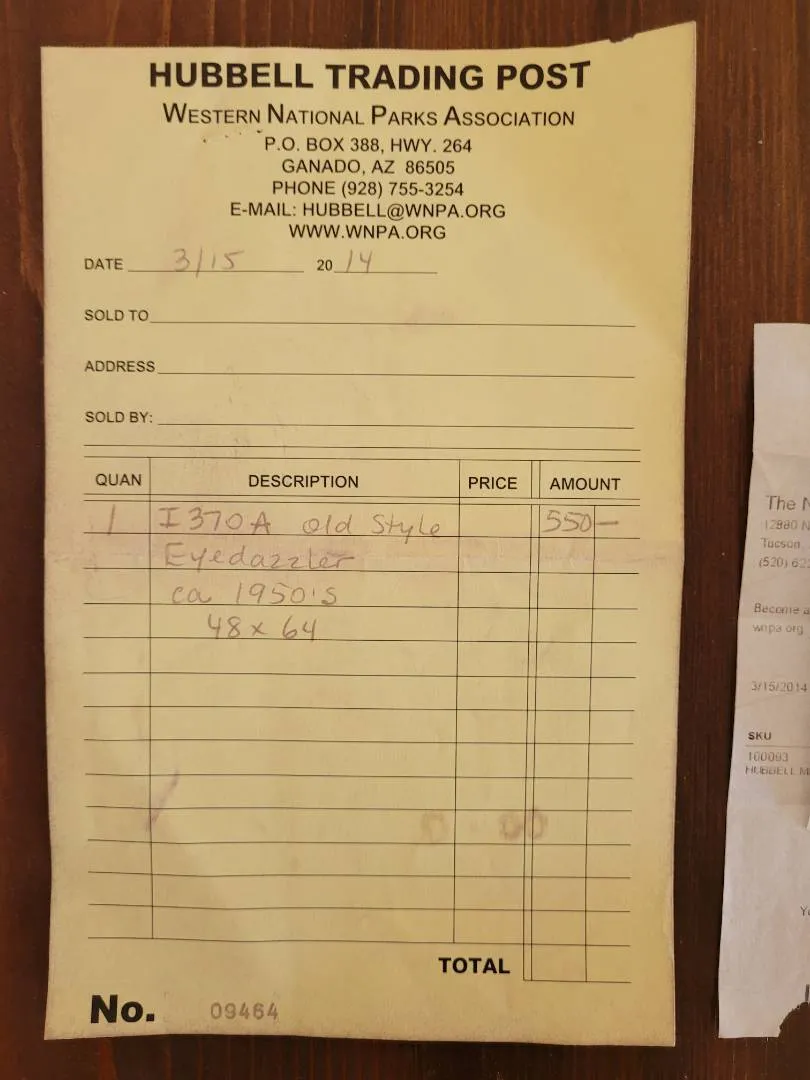 HUBBELL TRADING POST
WESTERN NATIONAL PARKS ASSOCIATION
P.O. BOX 388, HWY. 264
GANADO, AZ 86505
PHONE (928) 755-3254
E-MAIL: HUBBELL@WNPA.ORG
WWW.WNPA.ORG
DATE 3/15 20 14
SOLD TO
ADDRESS
SOLD BY:
QUAN DESCRIPTION PRICE AMOUNT
1 I370A Old Style 550-
Eyedazzler
ca 1950's
48 x 64
TOTAL
No. 09464
The
12880 N
Tucson
(520)
Become a
wnpa.org
3/15/2014
SKU
160093
HUBBELL